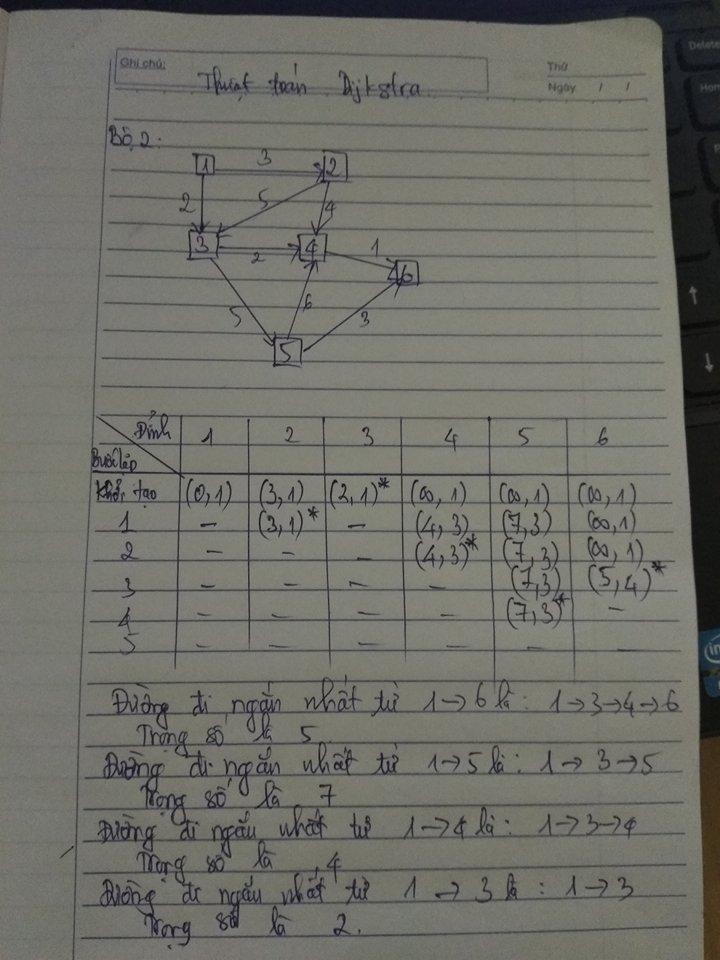 Ghi chú:
Thứ
Ngày / /
Thuật toán Dijkstra
Bộ 2:
1 3 2
2 5 4
3 2 4 1 6
5 6 3
5
Đỉnh 1 2 3 4 5 6
Bước lặp
Khởi tạo (0,1) (3,1) (2,1)* (∞,1) (∞,1) (∞,1)
1 – (3,1)* – (4,3) (7,3) (∞,1)
2 – – – (4,3)* (7,3) (∞,1)
3 – – – – (7,3) (5,4)*
4 – – – – (7,3)* –
5 – – – – – –
Đường đi ngắn nhất từ 1→6 là: 1→3→4→6
Trọng số là 5.
Đường đi ngắn nhất từ 1→5 là: 1→3→5
Trọng số là 7
Đường đi ngắn nhất từ 1→4 là: 1→3→4
Trọng số là 4
Đường đi ngắn nhất từ 1→3 là: 1→3
Trọng số là 2.
Delete